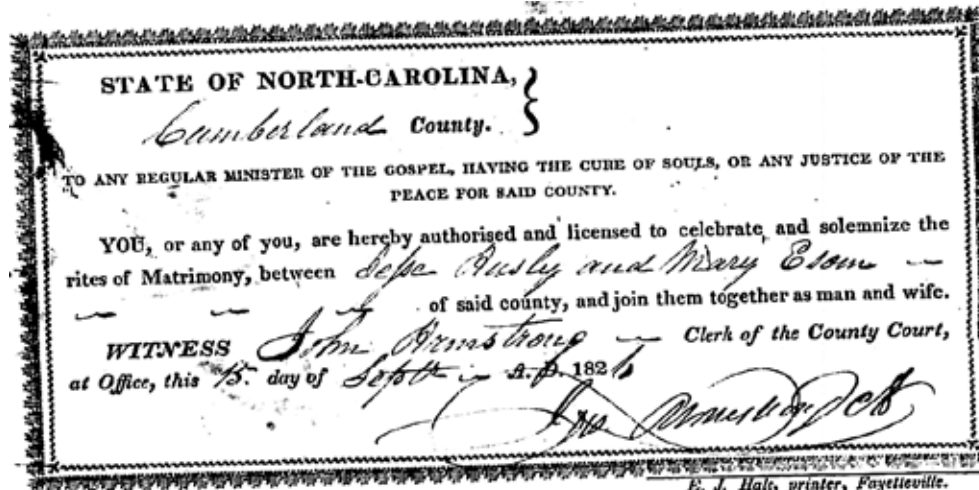 STATE OF NORTH-CAROLINA,
Cumberland County.
TO ANY REGULAR MINISTER OF THE GOSPEL, HAVING THE CURE OF SOULS, OR ANY JUSTICE OF THE
PEACE FOR SAID COUNTY.
YOU, or any of you, are hereby authorised and licensed to celebrate, and solemnize the
rites of Matrimony, between and Mary Esom
of said county, and join them together as man and wife.
WITNESS John Armstrong Clerk of the County Court,
at Office, this 15. day of Septr A. D. 1826
Jno Armstrong
E. J. Hale, printer, Fayetteville.